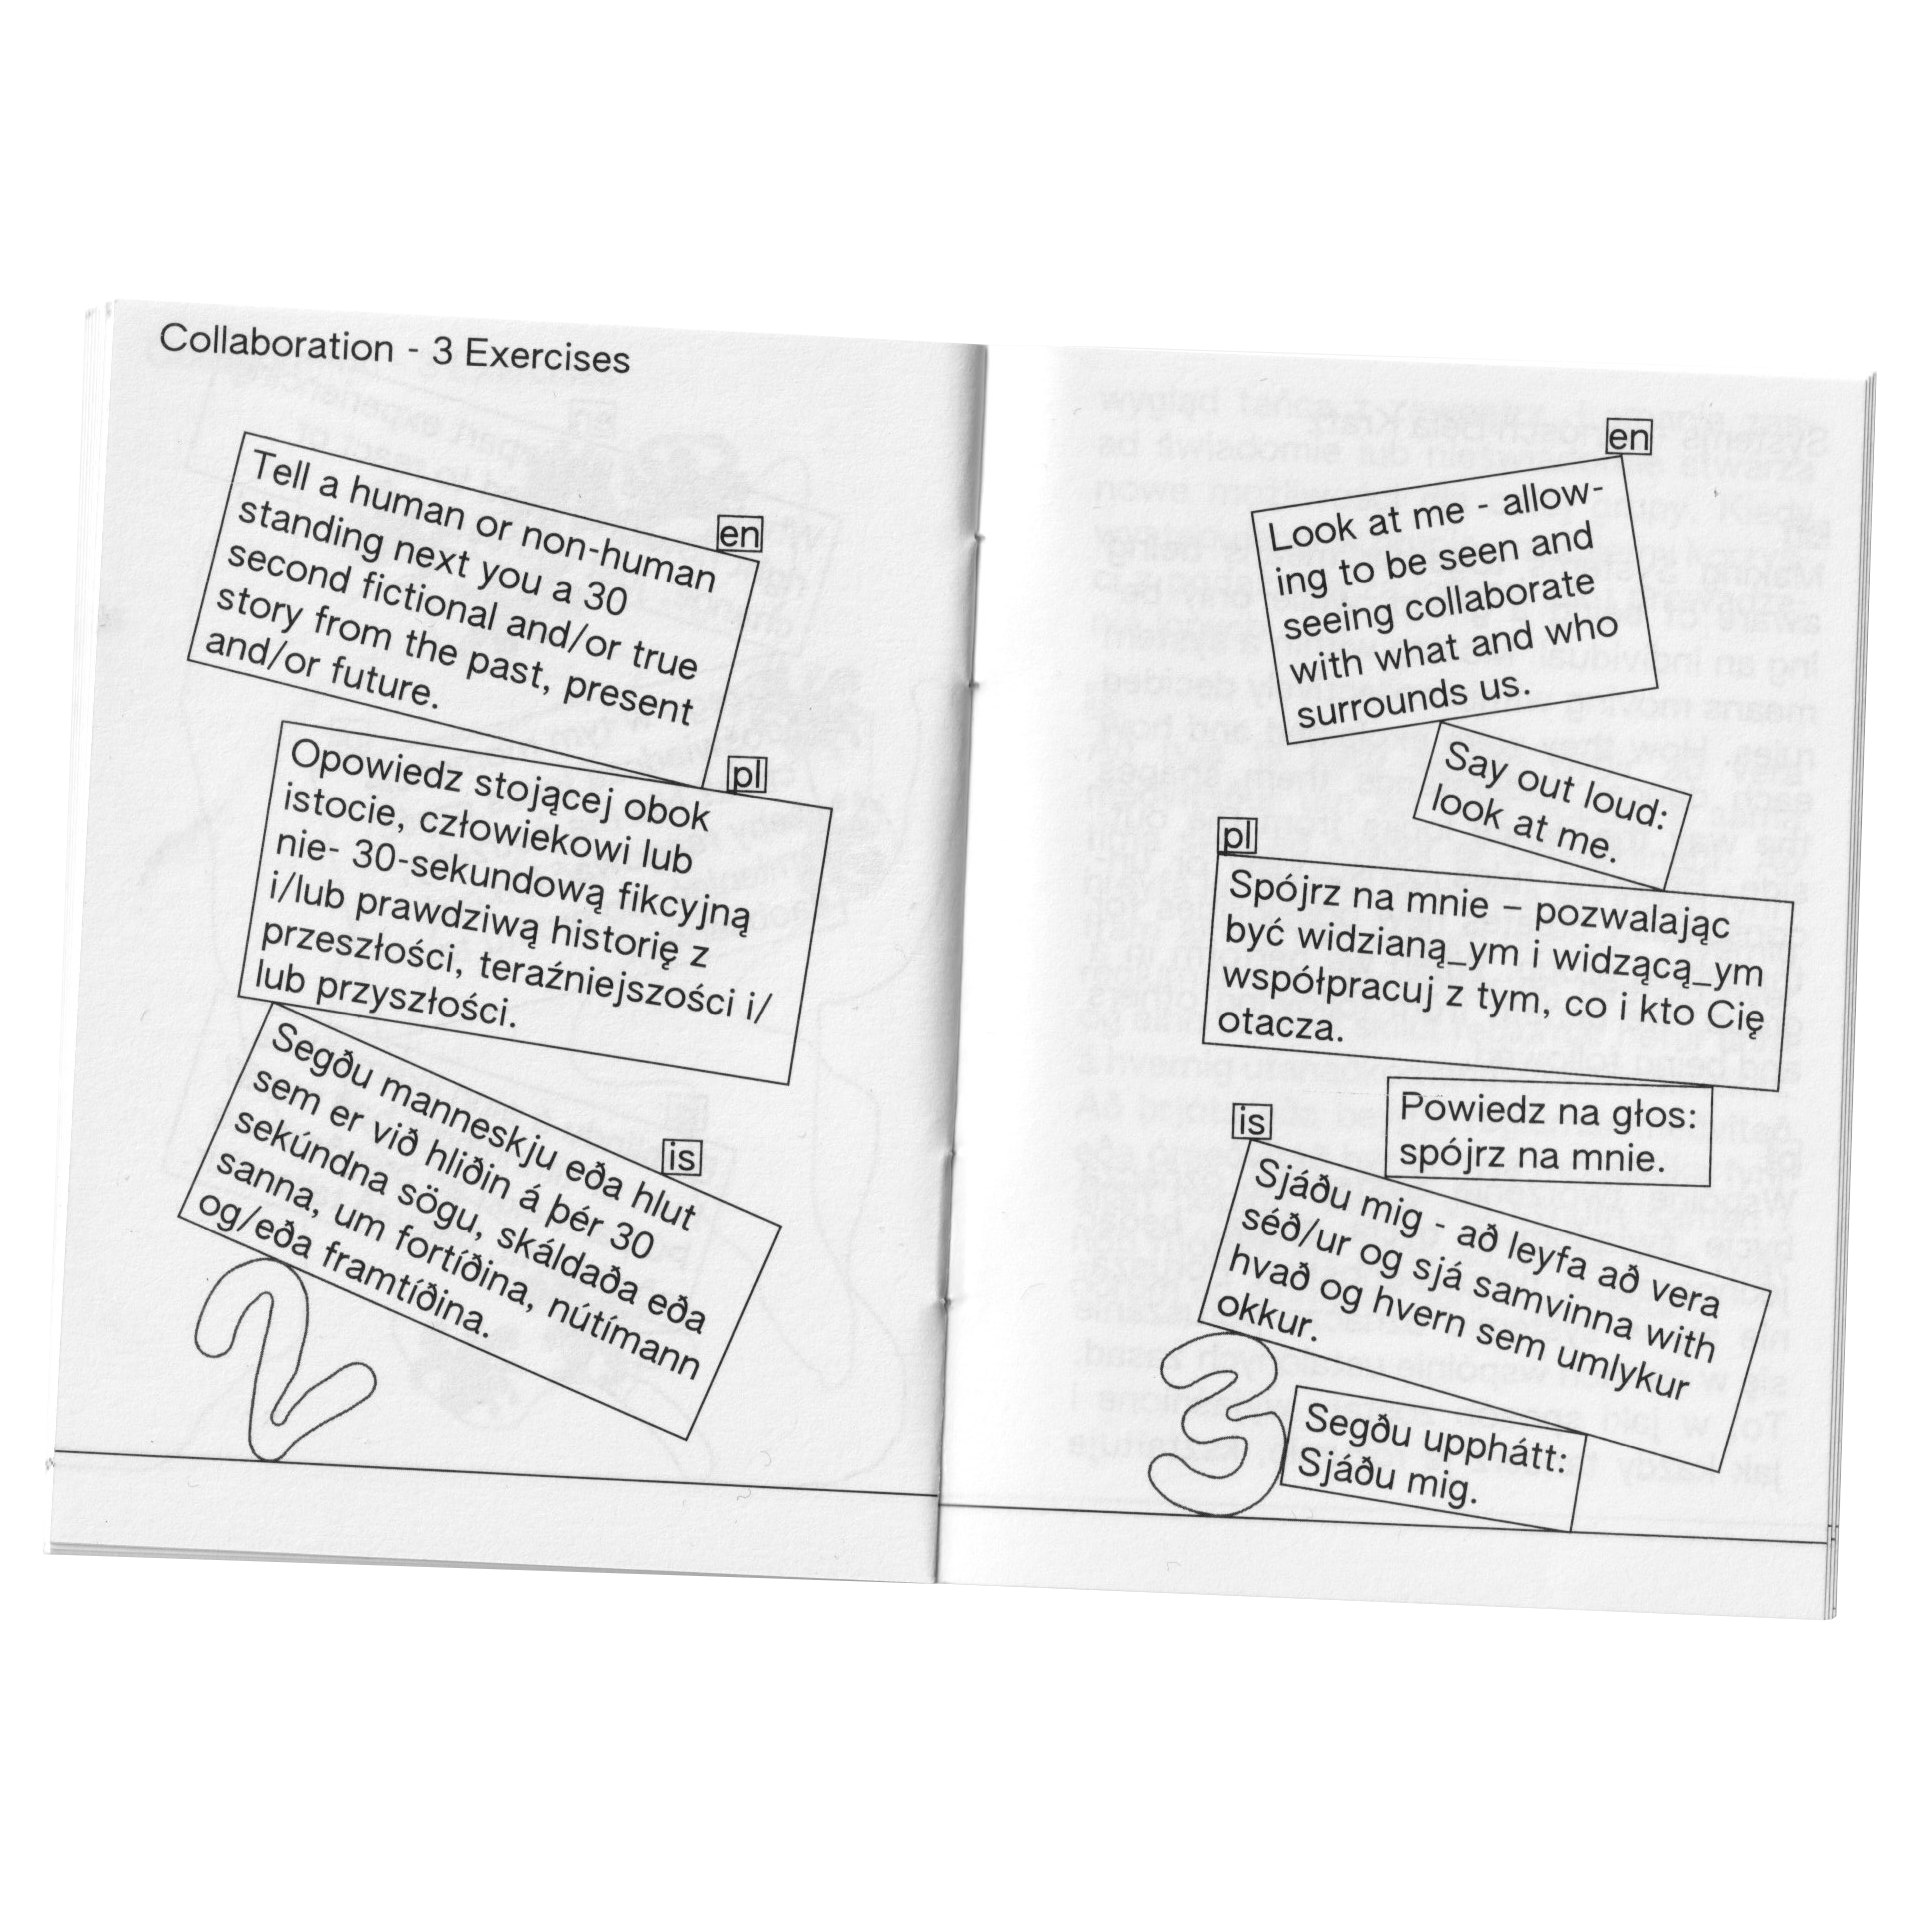 Collaboration - 3 Exercises
en
Tell a human or non-human
standing next you a 30
second fictional and/or true
story from the past, present
and/or future.
pl
Opowiedz stojącej obok
istocie, człowiekowi lub
nie- 30-sekundową fikcyjną
i/lub prawdziwą historię z
przeszłości, teraźniejszości i/
lub przyszłości.
is
Segðu manneskju eða hlut
sem er við hliðin á þér 30
sekúndna sögu, skáldaða eða
sanna, um fortíðina, nútímann
og/eða framtíðina.
2
en
Look at me - allow-
ing to be seen and
seeing collaborate
with what and who
surrounds us.
Say out loud:
look at me.
pl
Spójrz na mnie – pozwalając
być widzianą_ym i widzącą_ym
współpracuj z tym, co i kto Cię
otacza.
Powiedz na głos:
spójrz na mnie.
is
Sjáðu mig - að leyfa að vera
séð/ur og sjá samvinna with
hvað og hvern sem umlykur
okkur.
3
Segðu upphátt:
Sjáðu mig.